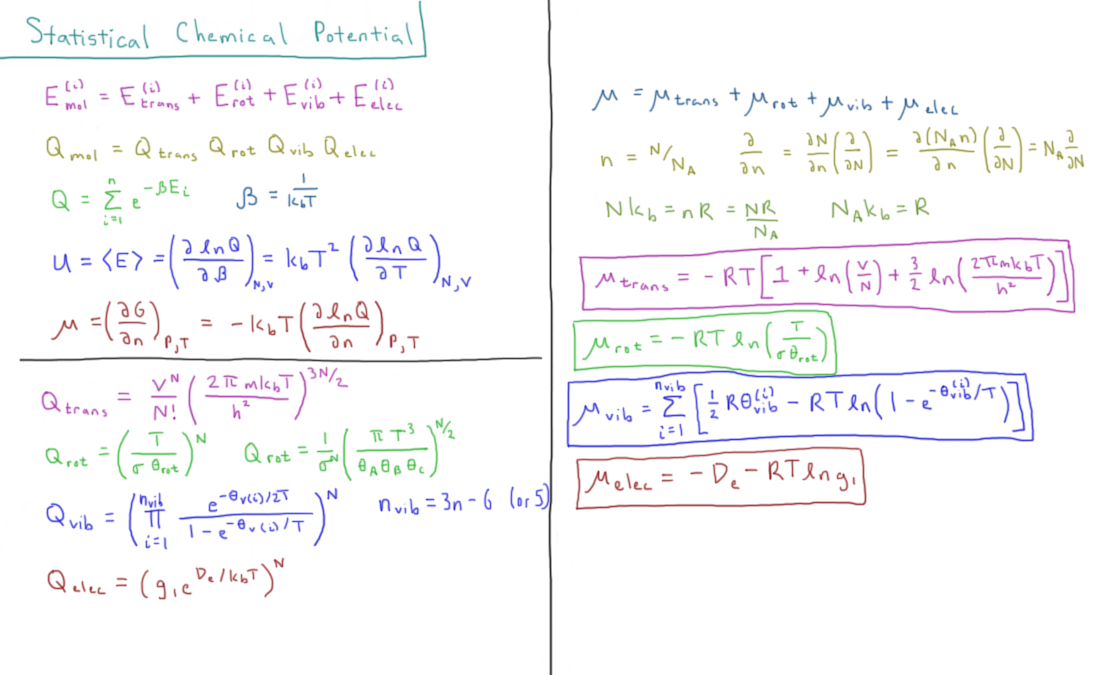 Statistical Chemical Potential
E_mol^(i) = E_trans^(i) + E_rot^(i) + E_vib^(i) + E_elec^(i)
Q_mol = Q_trans Q_rot Q_vib Q_elec
Q = Σ_{i=1}^{n} e^{-βE_i}    β = 1/(k_bT)
U = ⟨E⟩ = (∂lnQ/∂β)_{N,V} = k_bT² (∂lnQ/∂T)_{N,V}
μ = (∂G/∂n)_{P,T} = -k_bT (∂lnQ/∂n)_{P,T}
Q_trans = V^N/N! (2πmk_bT/h²)^{3N/2}
Q_rot = (T/(σθ_rot))^N    Q_rot = 1/σ^N (πT³/(θ_Aθ_Bθ_C))^{N/2}
Q_vib = (∏_{i=1}^{n_vib} e^{-θ_v(i)/2T}/(1-e^{-θ_v(i)/T}))^N    n_vib = 3n-6 (or 5)
Q_elec = (g₁e^{D_e/k_bT})^N
μ = μ_trans + μ_rot + μ_vib + μ_elec
n = N/N_A    ∂/∂n = ∂N/∂n (∂/∂N) = ∂(N_A n)/∂n (∂/∂N) = N_A ∂/∂N
Nk_b = nR = NR/N_A    N_Ak_b = R
μ_trans = -RT[1 + ln(V/N) + 3/2 ln(2πmk_bT/h²)]
μ_rot = -RT ln(T/(σθ_rot))
μ_vib = Σ_{i=1}^{n_vib} [1/2 Rθ_vib^(i) - RT ln(1-e^{-θ_vib^(i)/T})]
μ_elec = -D_e - RT ln g₁